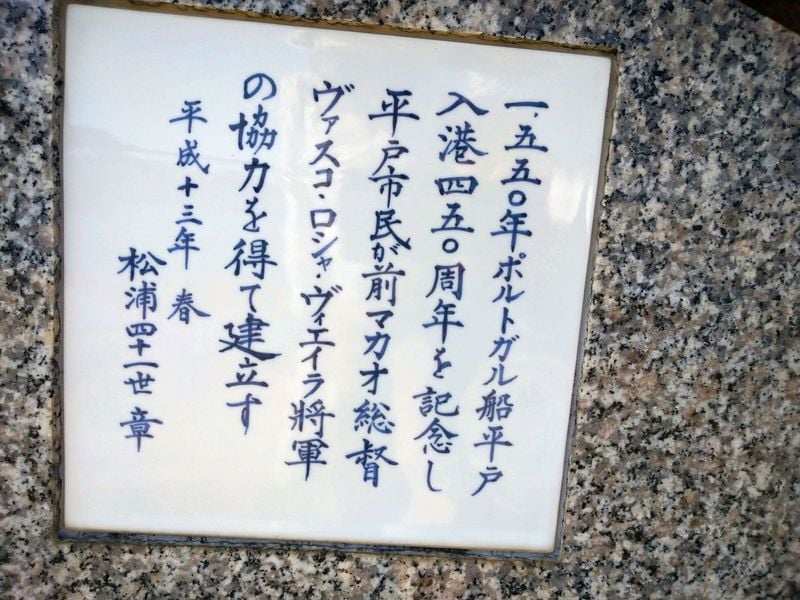 一、五五〇年ポルトガル船平戸
入港四五〇周年を記念し
平戸市民が前マカオ総督
ヴァスコ・ロシャ・ヴィエイラ將軍
の協力を得て建立す
平成十三年 春
松浦四十一世 章